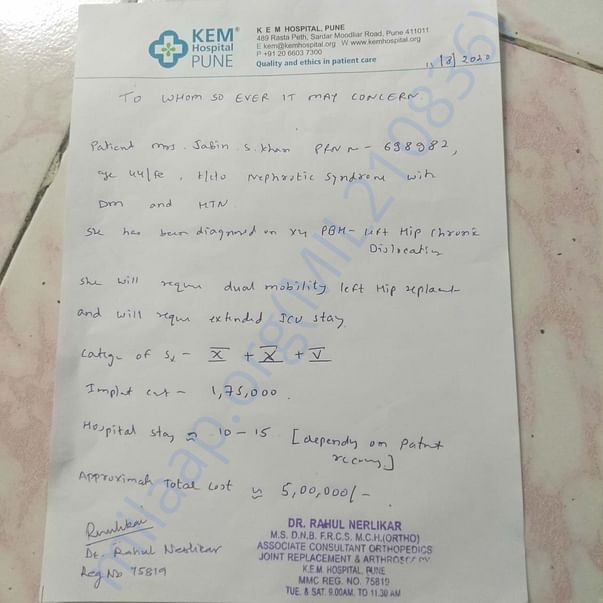 KEM
Hospital
PUNE
K E M HOSPITAL, PUNE
489 Rasta Peth, Sardar Moodliar Road, Pune 411011
E kem@kemhospital.org W www.kemhospital.org
P +91 20 6603 7300
Quality and ethics in patient care
/8/2020
TO WHOM SO EVER IT MAY CONCERN.
Patient mrs. Jabin. S. Khan PRN n - 698982,
age 44/fe, H/c/o Nephrotic Syndrome with
Dm and HTN.
She has been diagnosed on Left Hip Chronic
Dislocation
She will require dual mobility left Hip replacement
and will require extended ICU stay.
of Sx - X + X + V
Implant cost - 1,75,000.
Hospital stay ≈ 10-15 [depending on Patient
recovery]
Approximate Total Cost ≈ 5,00,000/-
Dr. Rahul Nerlikar
Reg. No 75819
DR. RAHUL NERLIKAR
M.S. D.N.B. F.R.C.S. M.C.H.(ORTHO)
ASSOCIATE CONSULTANT ORTHOPEDICS
JOINT REPLACEMENT & ARTHROSCOPY
K.E.M. HOSPITAL, PUNE
MMC REG. NO. 75819
TUE. & SAT. 9.00AM. TO 11.30 AM
milaap.org(MIL210836)